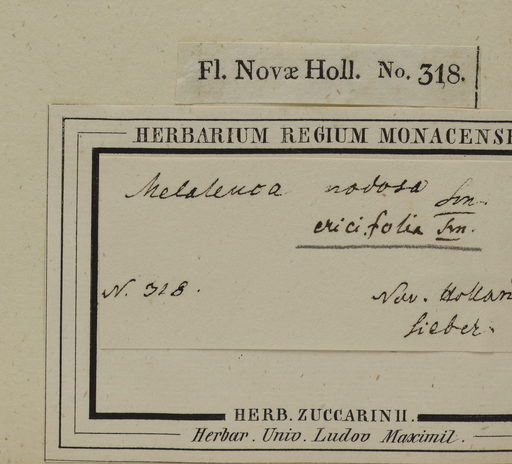 Fl. Novæ Holl. No. 318.
HERBARIUM REGIUM MONACENSE
Melaleuca nodosa Sm.
ericifolia Sm.
N. 318.
Nov. Hollan
Sieber.
HERB. ZUCCARINII.
Herbar. Univ. Ludov Maximil.